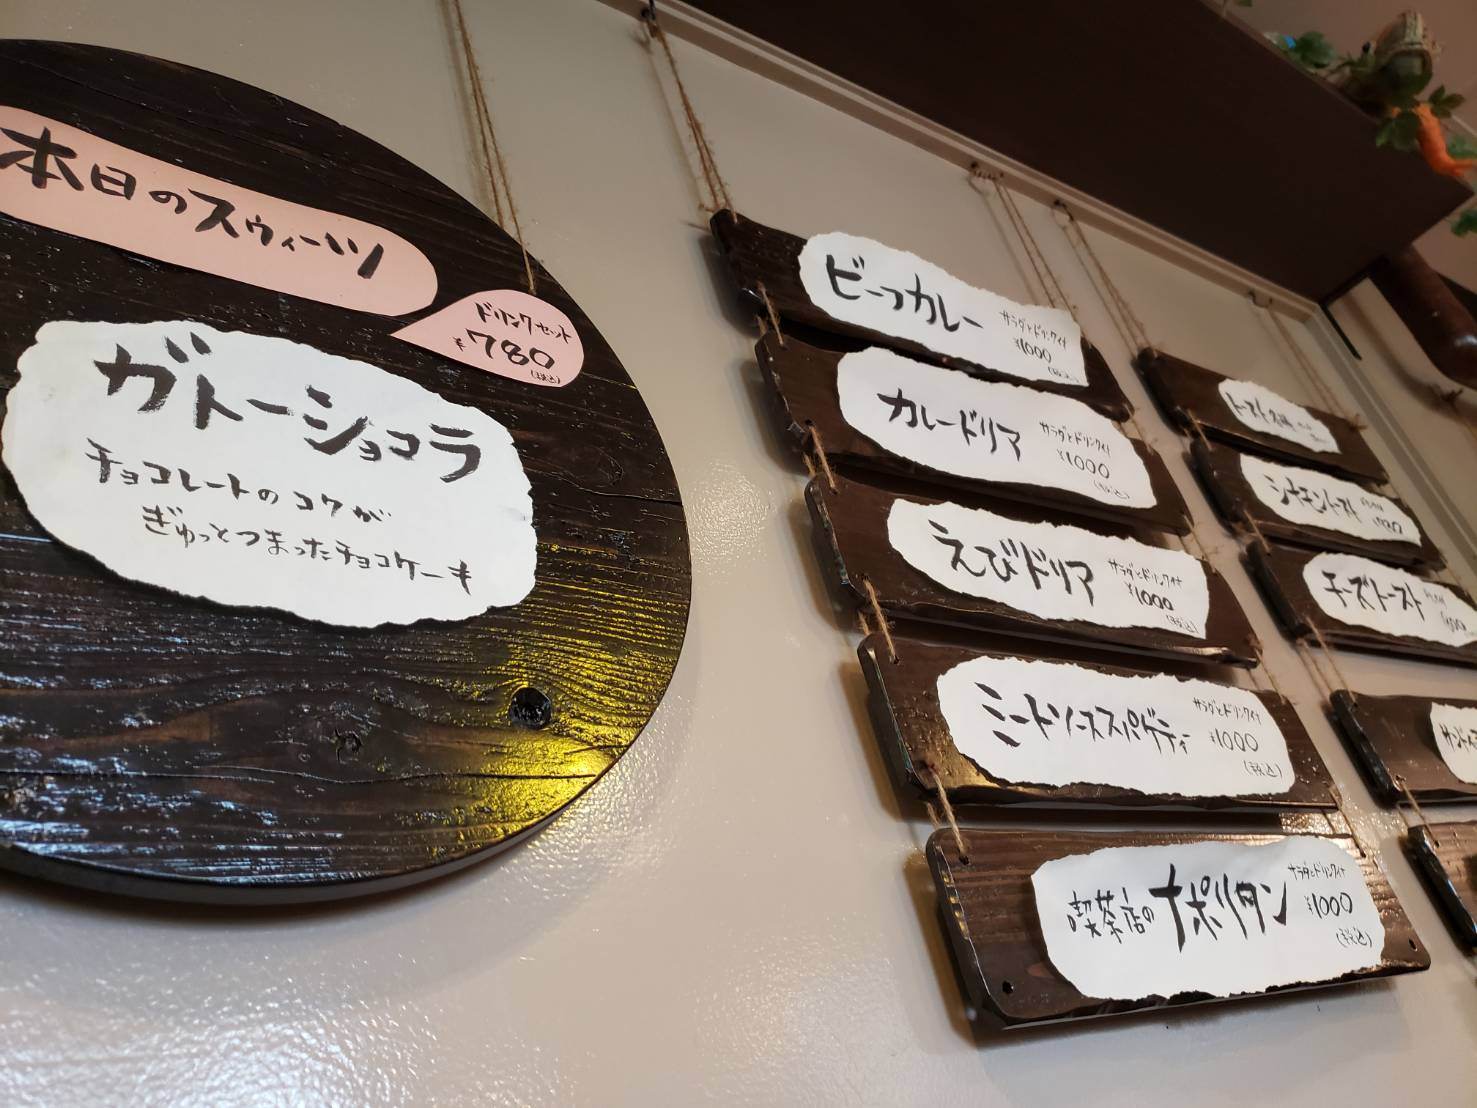 本日のスウィーツ
ドリンクセット
¥780
(税込)
ガトーショコラ
チョコレートのコクが
ぎゅっとつまったチョコケーキ
ビーフカレー
サラダとドリンク付
¥1000
(税込)
カレードリア
サラダとドリンク付
¥1000
(税込)
えびドリア
サラダとドリンク付
¥1000
(税込)
ミートソーススパゲティ
サラダとドリンク付
¥1000
(税込)
喫茶店のナポリタン
サラダとドリンク付
¥1000
(税込)
トースト
シナモントースト
チーズトースト